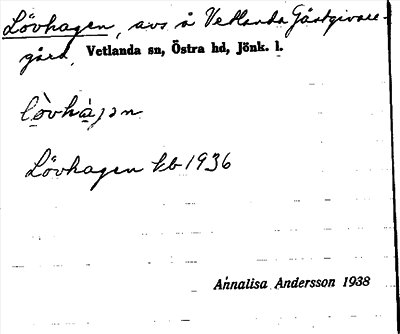 Lövhagen, avs å Vetlanda Gästgivare-
gård, Vetlanda sn, Östra hd, Jönk. l.
Lövhagen kb 1936
Annalisa Andersson 1938